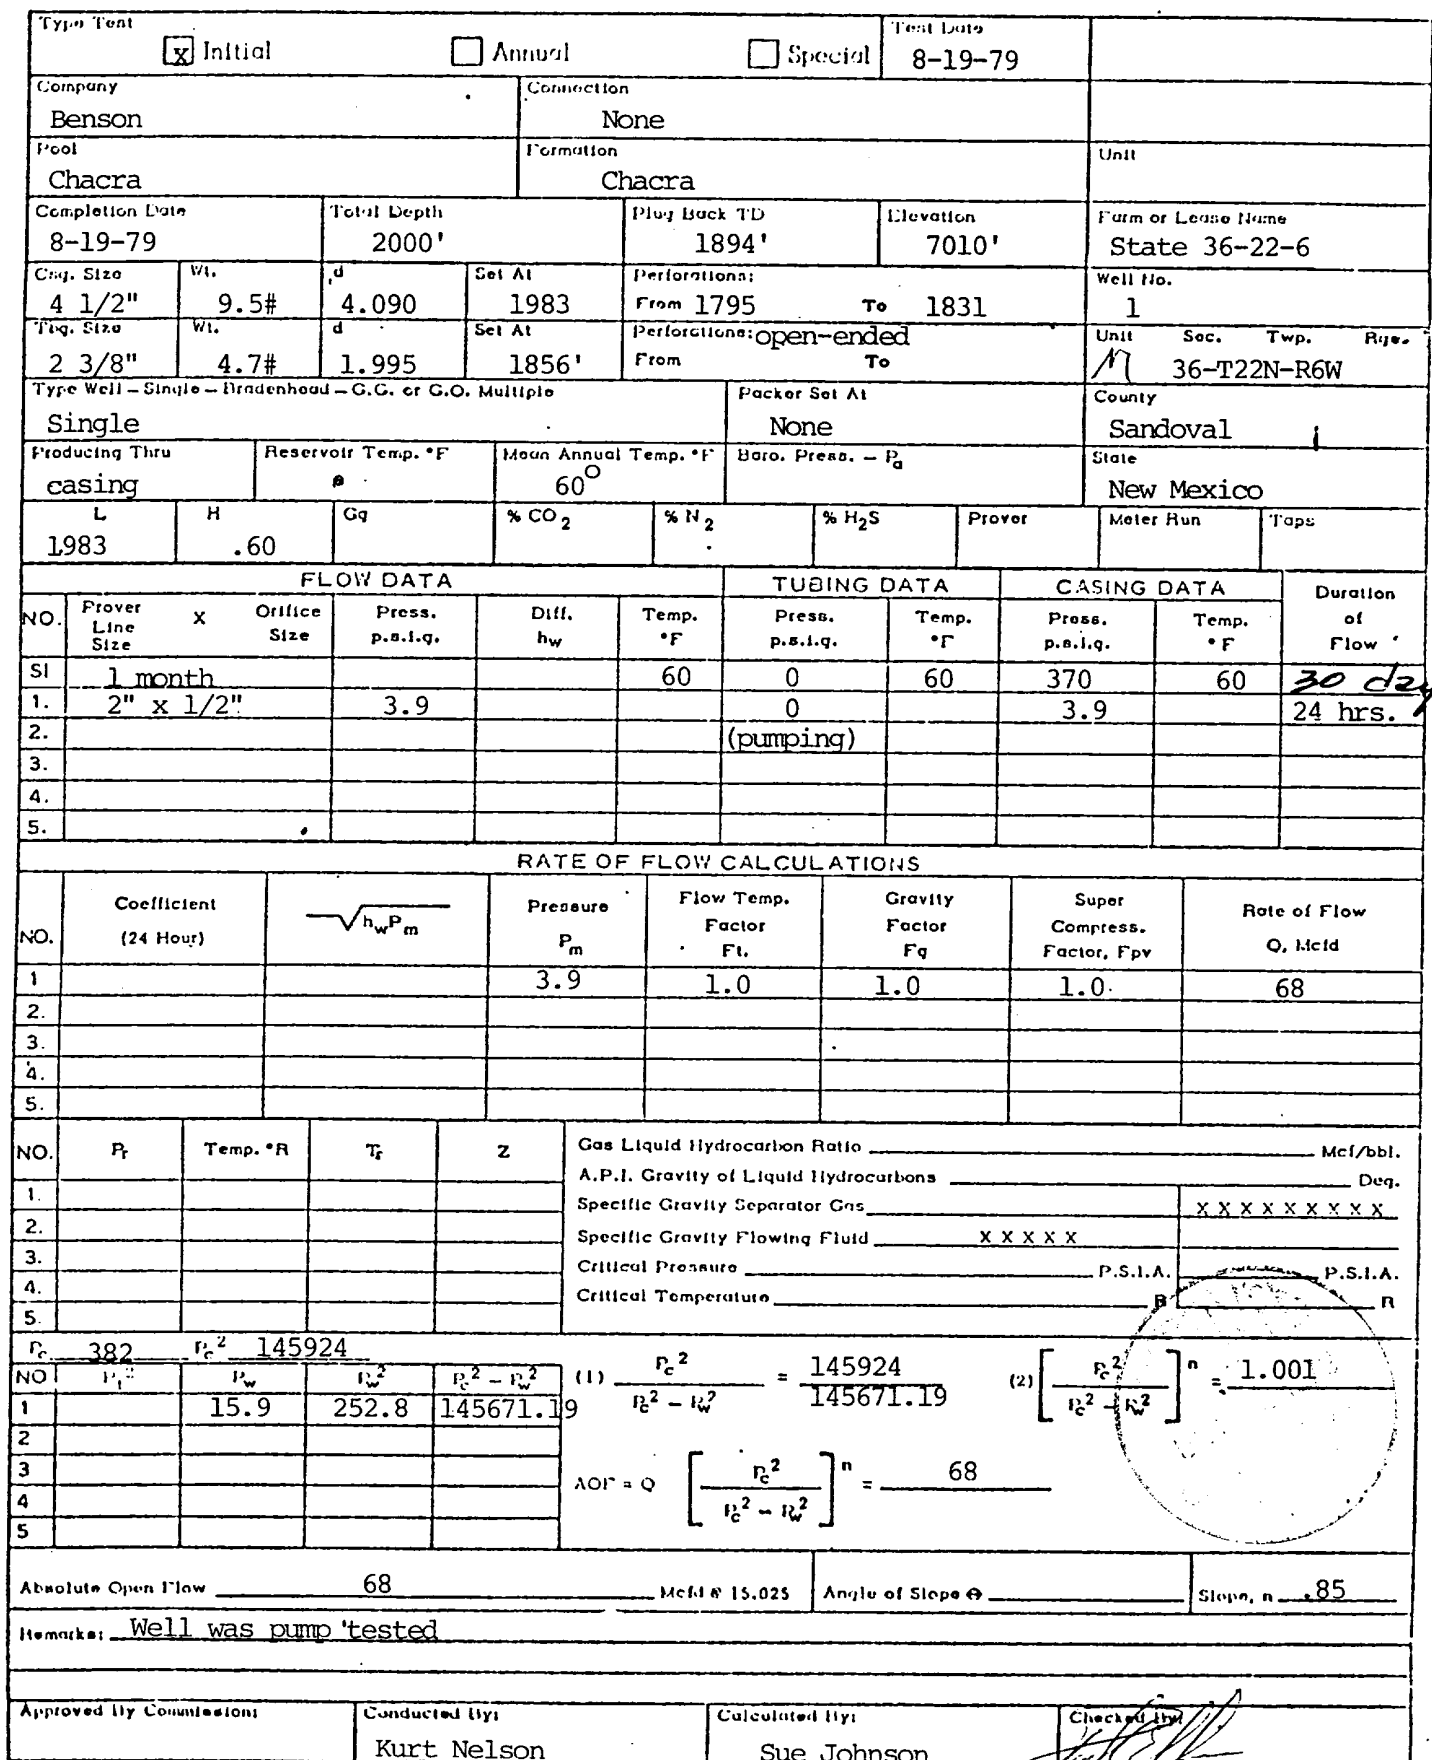 Type Test
x Initial Annual Special
Test Date
8-19-79
Company
Benson
Connection
None
Pool
Chacra
Formation
Chacra
Unit
Completion Date
8-19-79
Total Depth
2000'
Plug Back TD
1894'
Elevation
7010'
Farm or Lease Name
State 36-22-6
Csg. Size
4 1/2"
Wt.
9.5#
d
4.090
Set At
1983
Perforations:
From 1795 To 1831
Well No.
1
Tbg. Size
2 3/8"
Wt.
4.7#
d
1.995
Set At
1856'
Perforations: open-ended
From To
Unit Sec. Twp. Rge.
M 36-T22N-R6W
Type Well – Single – Bradenhead – G.G. or G.O. Multiple
Single
Packer Set At
None
County
Sandoval
Producing Thru
casing
Reservoir Temp. °F
Mean Annual Temp. °F
60°
Baro. Press. – Pa
State
New Mexico
L
1983
H
.60
Gg
% CO2
% N2
% H2S
Prover
Meter Run
Taps
FLOW DATA TUBING DATA CASING DATA Duration of Flow
NO. Prover Line Size X Orifice Size Press. p.s.i.g. Diff. hw Temp. °F Press. p.s.i.g. Temp. °F Press. p.s.i.g. Temp. °F
SI 1 month 60 0 60 370 60 30 day
1. 2" x 1/2" 3.9 0 3.9 24 hrs.
2. (pumping)
3.
4.
5.
RATE OF FLOW CALCULATIONS
NO. Coefficient (24 Hour) √hwPm Pressure Pm Flow Temp. Factor Ft. Gravity Factor Fg Super Compress. Factor, Fpv Rate of Flow Q, Mcfd
1 3.9 1.0 1.0 1.0 68
2.
3.
4.
5.
NO. Pr Temp. °R Tr Z
1.
2.
3.
4.
5.
Gas Liquid Hydrocarbon Ratio Mcf/bbl.
A.P.I. Gravity of Liquid Hydrocarbons Deg.
Specific Gravity Separator Gas X X X X X X X X X
Specific Gravity Flowing Fluid X X X X X
Critical Pressure P.S.I.A. P.S.I.A.
Critical Temperature R R
Pc 382 Pc² 145924
NO Pt² Pw Pw² Pc² – Pw²
1 15.9 252.8 145671.19
2
3
4
5
(1) Pc² / Pc² – Pw² = 145924 / 145671.19
(2) [ Pc² / Pc² – Pw² ] n = 1.001
AOF = Q [ Pc² / Pc² – Pw² ] n = 68
Absolute Open Flow 68 Mcfd @ 15.025 Angle of Slope Θ Slope, n .85
Remarks: Well was pump tested
Approved By Commission:
Conducted By:
Kurt Nelson
Calculated By:
Sue Johnson
Checked By: